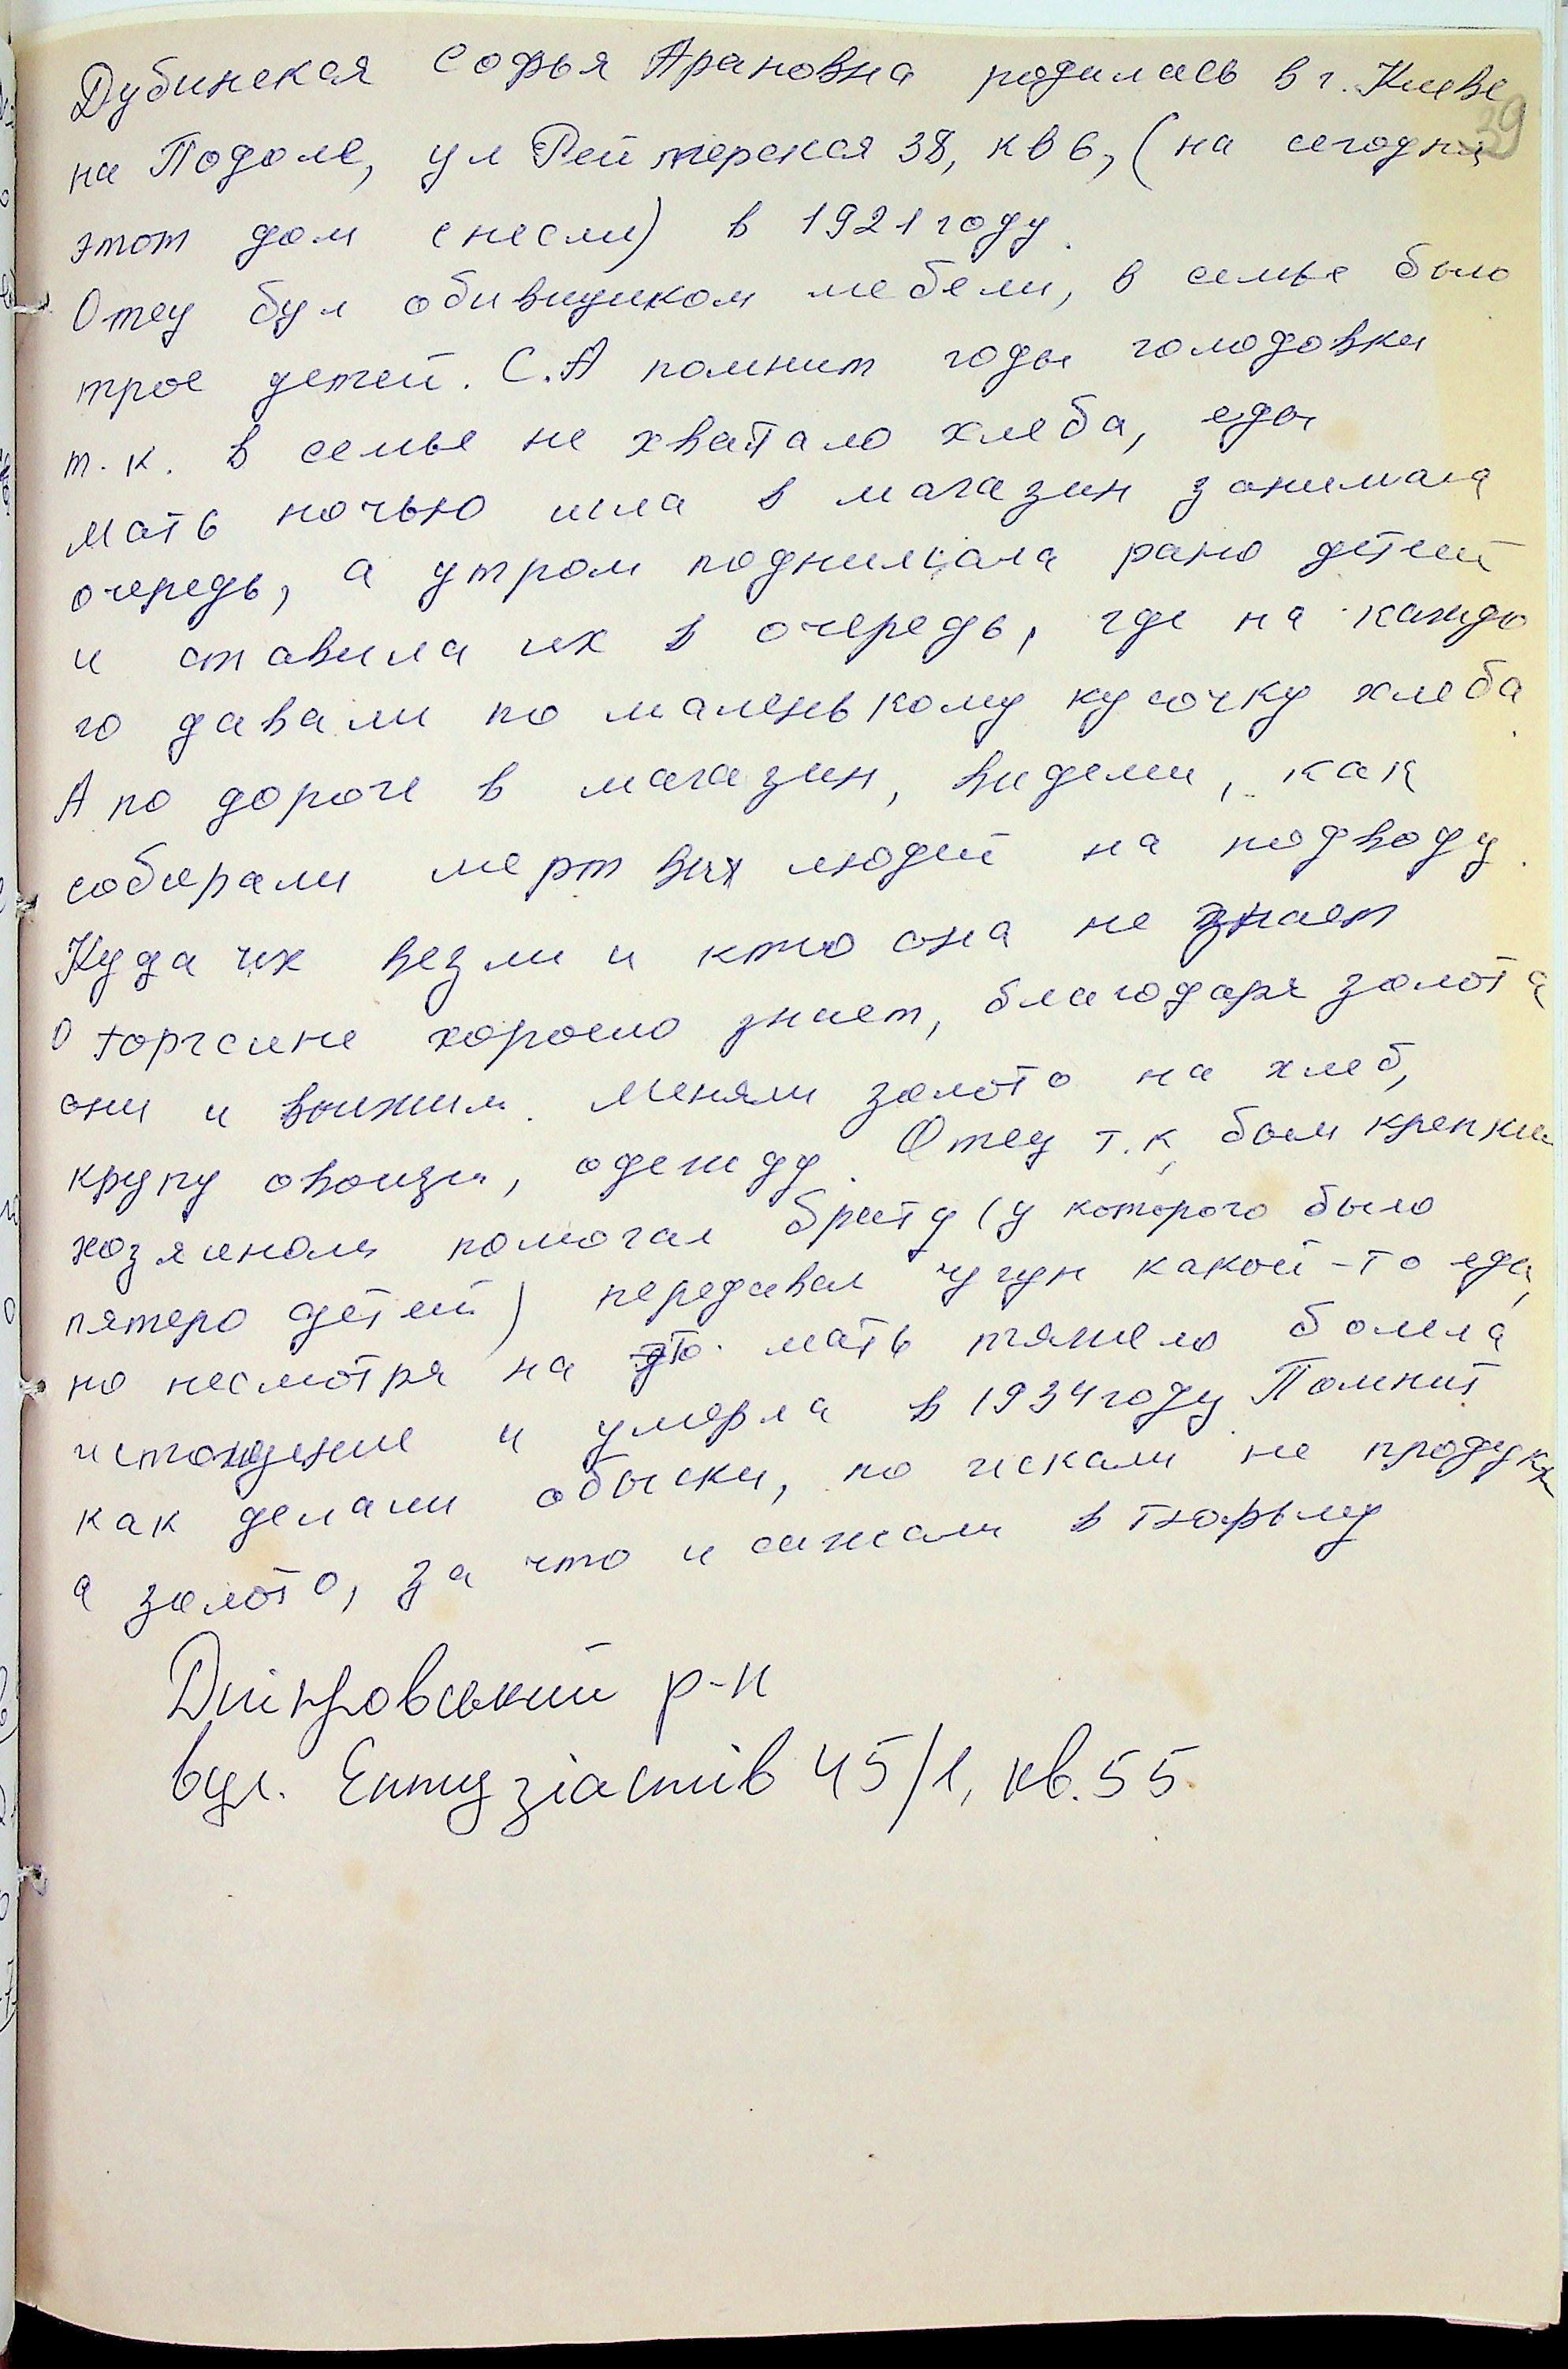 39
Дубинская Софья Арановна родилась в г. Киеве
на Подоле, ул Рейтерская 38, кв 6, (на сегодня
этот дом снесли) в 1921 году.
Отец бул обивщиком мебели, в семье было
трое детей. С.А помнит годы голодовки
т.к. в семье не хватало хлеба, еды
мать ночью шла в магазин занимала
очередь, а утром поднимала рано детей
и ставила их в очередь, где на каждо
го давали по маленькому кусочку хлеба.
А по дороге в магазин, видели, как
собирали мертвых людей на подводу.
Куда их везли и кто она не знает
О торгсине хорошо знает, благодаря золота
они и выжили. Меняли золото на хлеб,
крупу овощи, одежду. Отец т.к. был крепким
хозяином помогал брату (у которого было
пятеро детей) передавал чугун какой-то еды,
но несмотря на это мать тяжело болела
истощение и умерла в 1934 году Помнит
как делали обыски, но искали не продукты
а золото, за что и сажали в тюрьму
Дніпровський р-н
вул. Ентузіастів 45/1, кв. 55